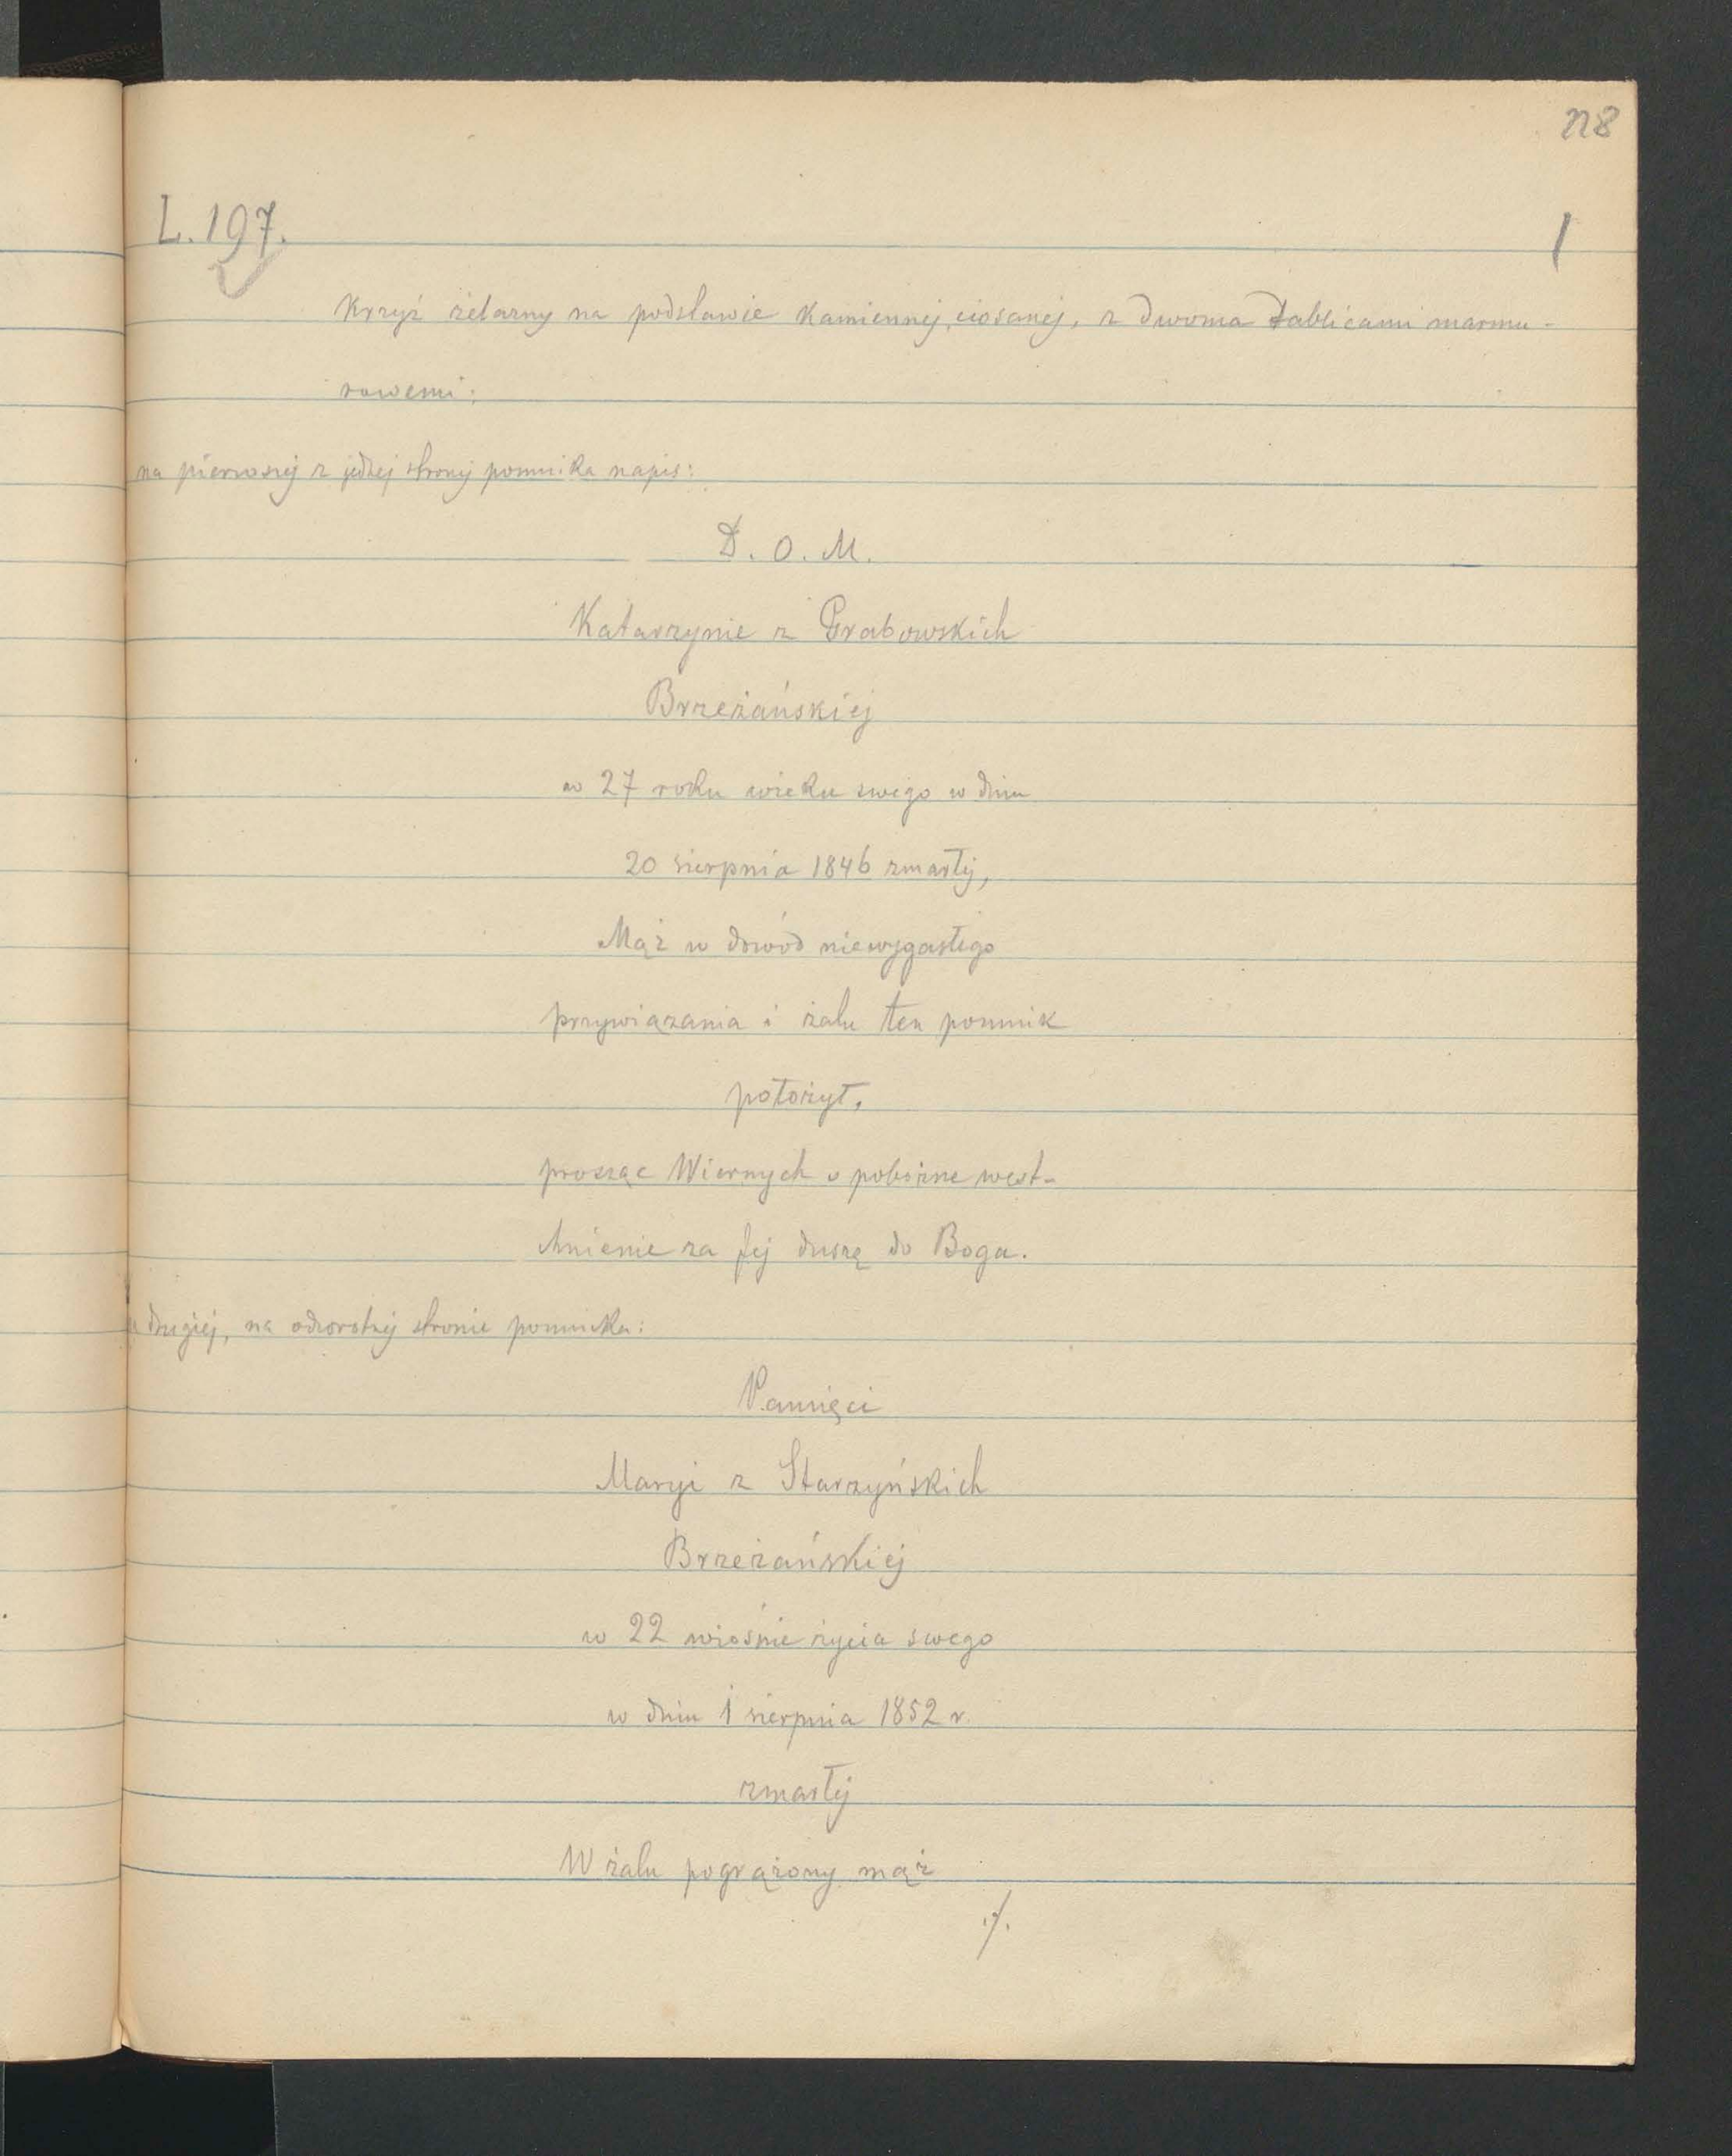 L. 197.
1
Krzyż żelazny na podstawie kamiennej, ciosanej, z dwoma tablicami marmu-
rowemi:
na pierwszej z jednej strony pomnika napis:
D. O. M.
Katarzynie z Grabowskich
Brzeżańskiej
w 27 roku wieku swego w dniu
20 sierpnia 1846 zmarłej,
Mąż w dowód niewygasłego
przywiązania i żalu ten pomnik
położył,
prosząc Wiernych o pobożne west-
chnienie za Jej duszę do Boga.
drugiej, na odwrotnej stronie pomnika:
Pamięci
Maryi z Starzyńskich
Brzeżańskiej
w 22 wiośnie życia swego
w dniu 1 sierpnia 1852 r.
zmarłej
W żalu pogrążony mąż
./.